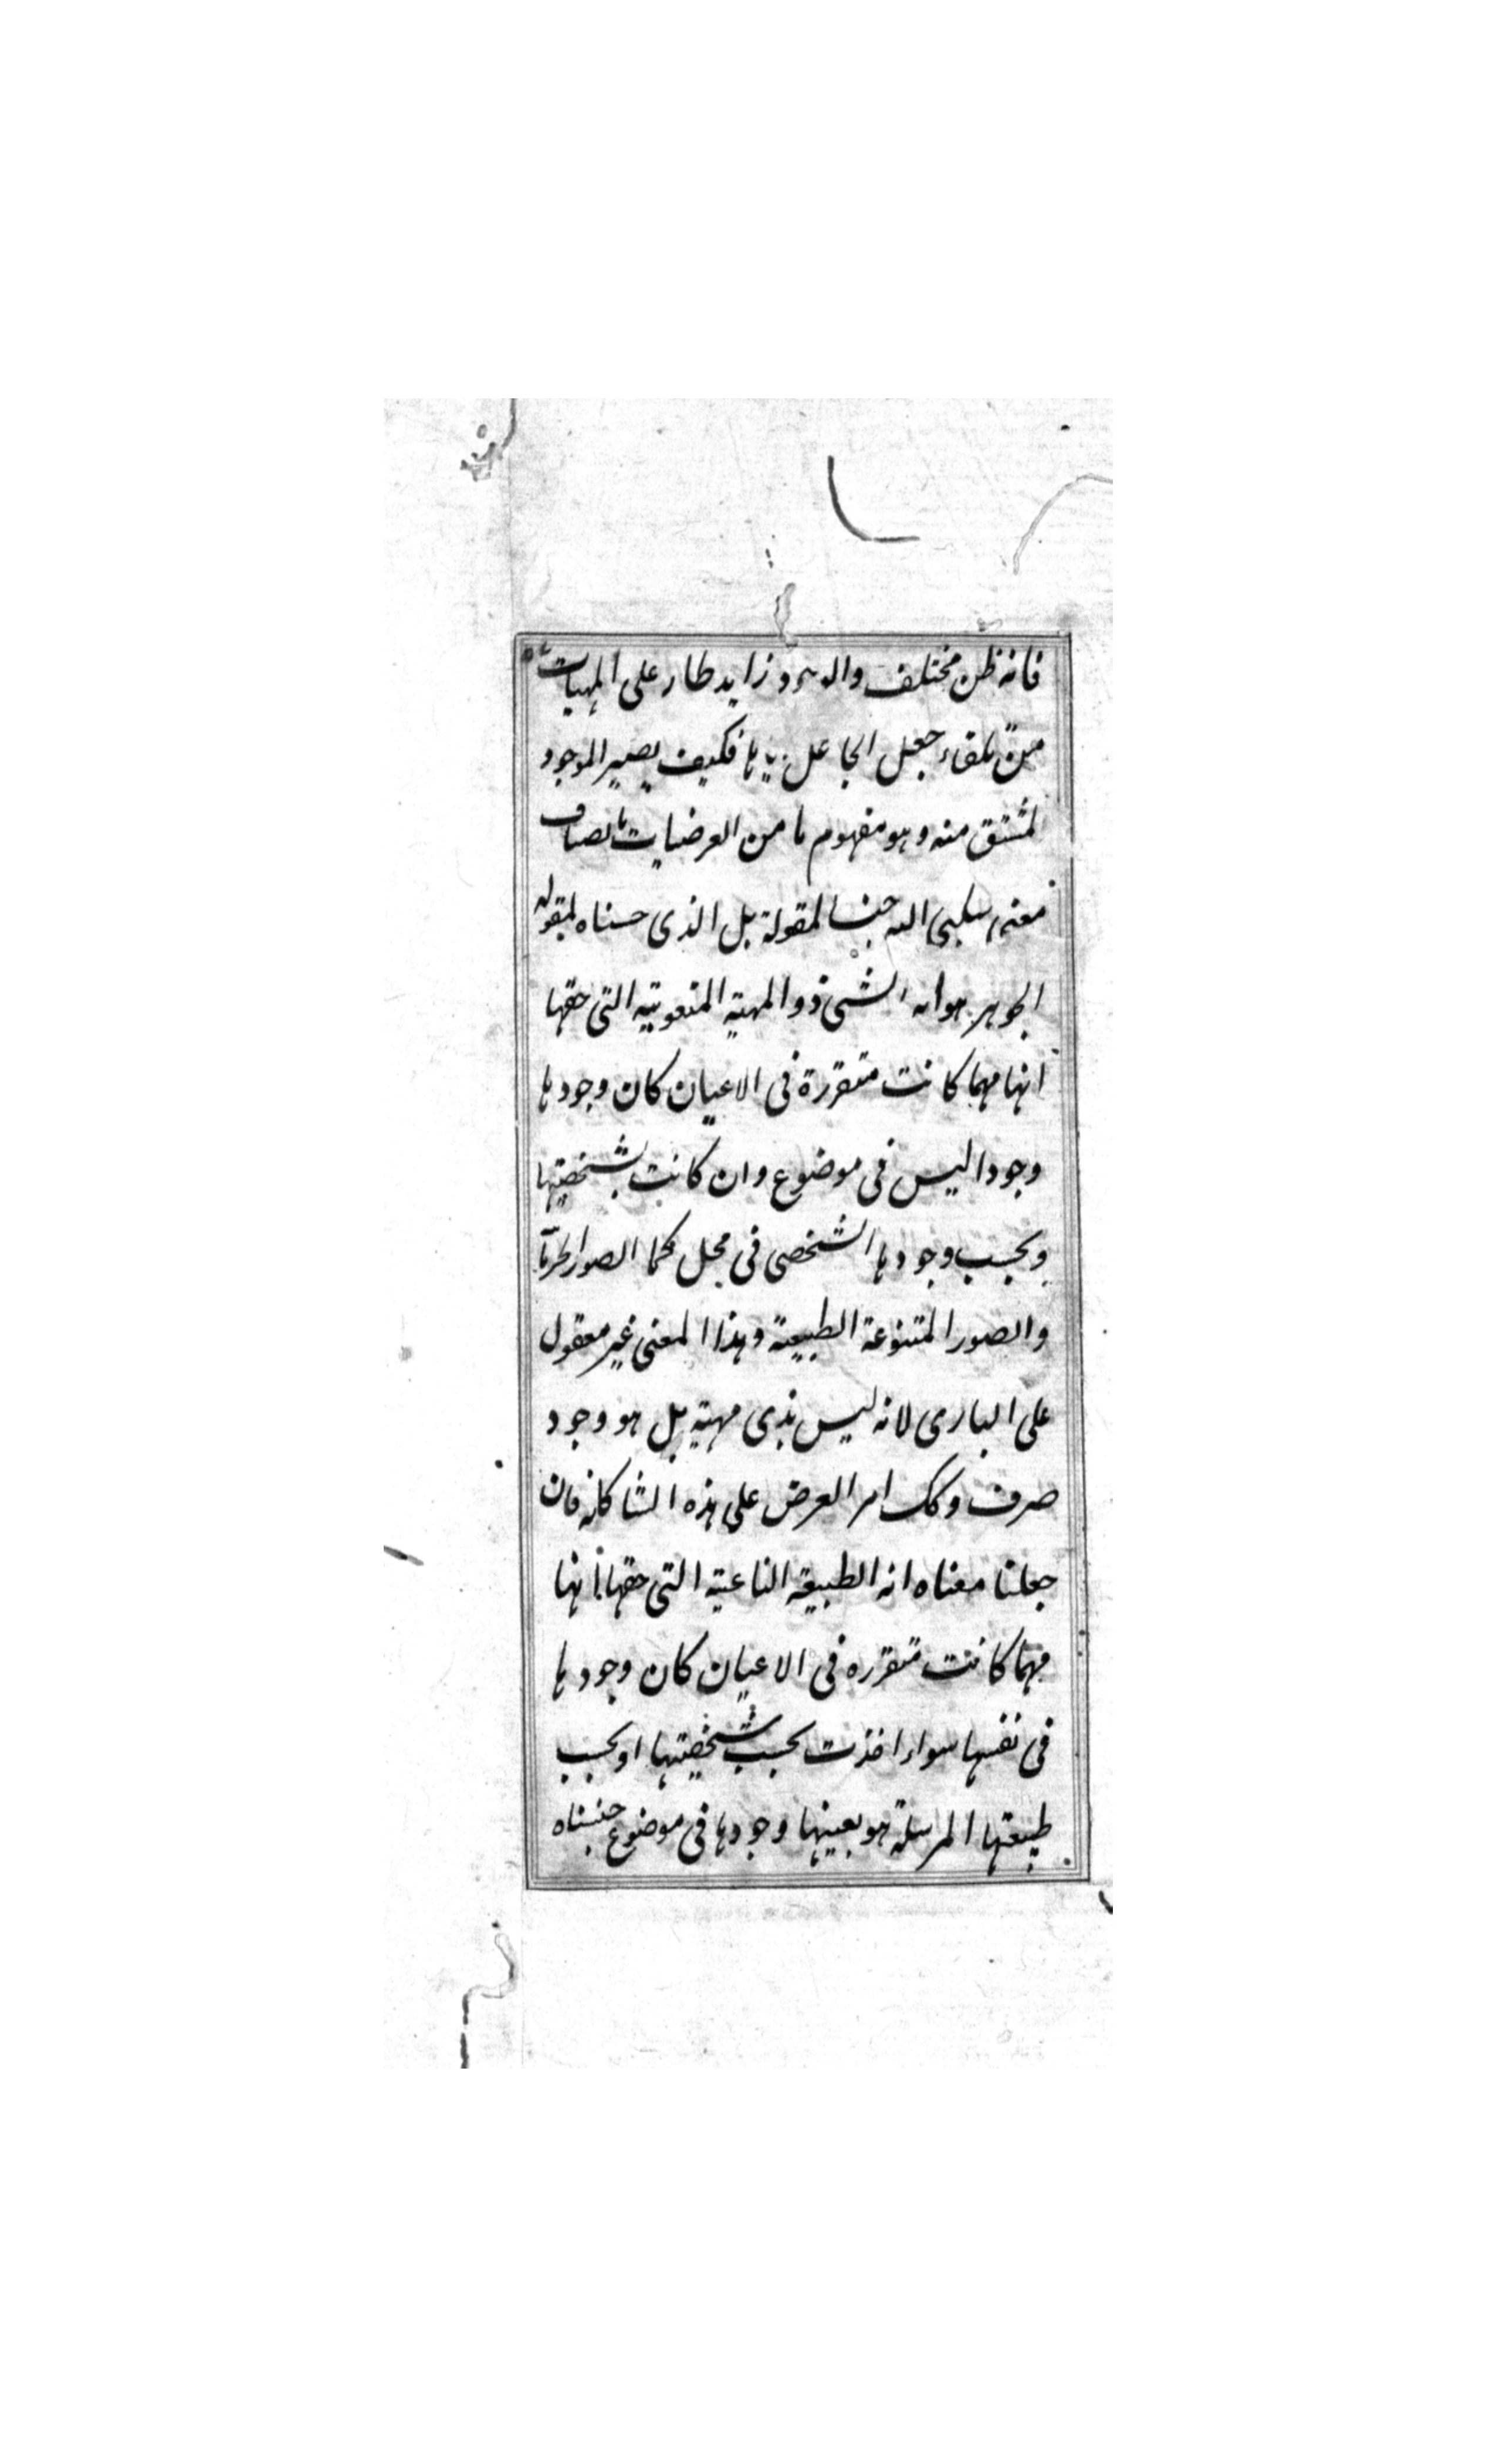 فانه ظن مختلف والوجود زايد طار على المهيات
من تلقاء جعل الجاعل اياها فكيف يصير الموجود
المشتق منه وهو مفهوم ما من العرضيات بانضياف
معنى سلبى اليه جنسا لمقولة بل الذى جنسناه لمقولة
الجوهر هو انه الشى ذو المهية المنعوتية التى حقها
انها مهما كانت متقررة فى الاعيان كان وجودها
وجودا ليس فى موضوع وان كانت بشخصيتها
وبحسب وجودها الشخصى فى محل كما الصور
والصور المتنوعة الطبيعية وهذا المعنى غير مقول
على البارى لانه ليس بذى مهية بل هو وجود
صرف وكك امر العرض على هذه الشاكله فان
جعلنا معناه انه الطبيعة الناعتية التى حقها انها
مهما كانت متقرره فى الاعيان كان وجودها
فى نفسها سواء اخذت بحسب شخصيتها او بحسب
طبيعتها المرسلة هو بعينها وجودها فى موضوع جنسناه